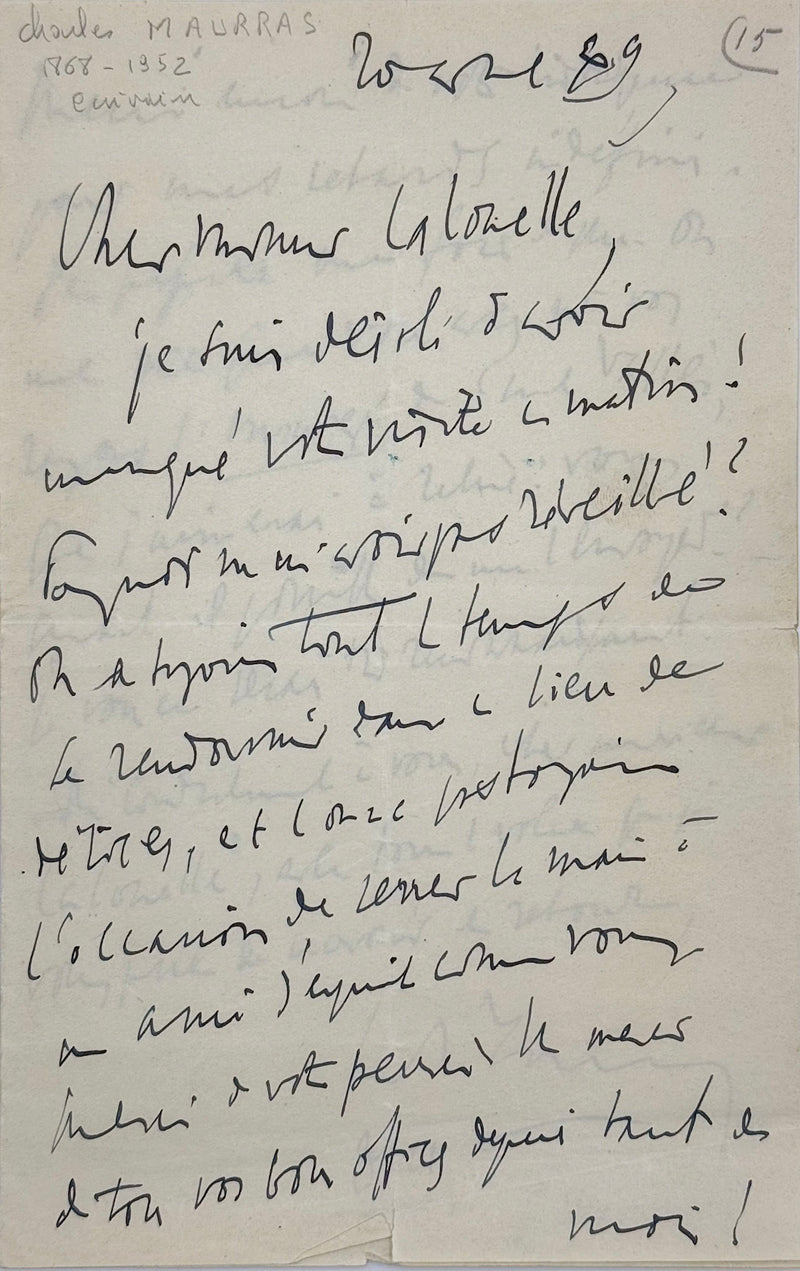 Charles MAURRAS
1868 - 1952
écrivain
15
20
Cher Monsieur Lalouelle,
je suis désolé d'avoir
manqué votre visite ce matin !
Pourquoi ne m'avoir pas réveillé !?
On a toujours tout le temps de
se rendormir dans ce lieu de
délices, et l'on a pas toujours
l'occasion de serrer la main à
un ami d'esprit comme vous
Merci de votre pensée, et merci
de tous vos bons offices depuis tant de
mois !